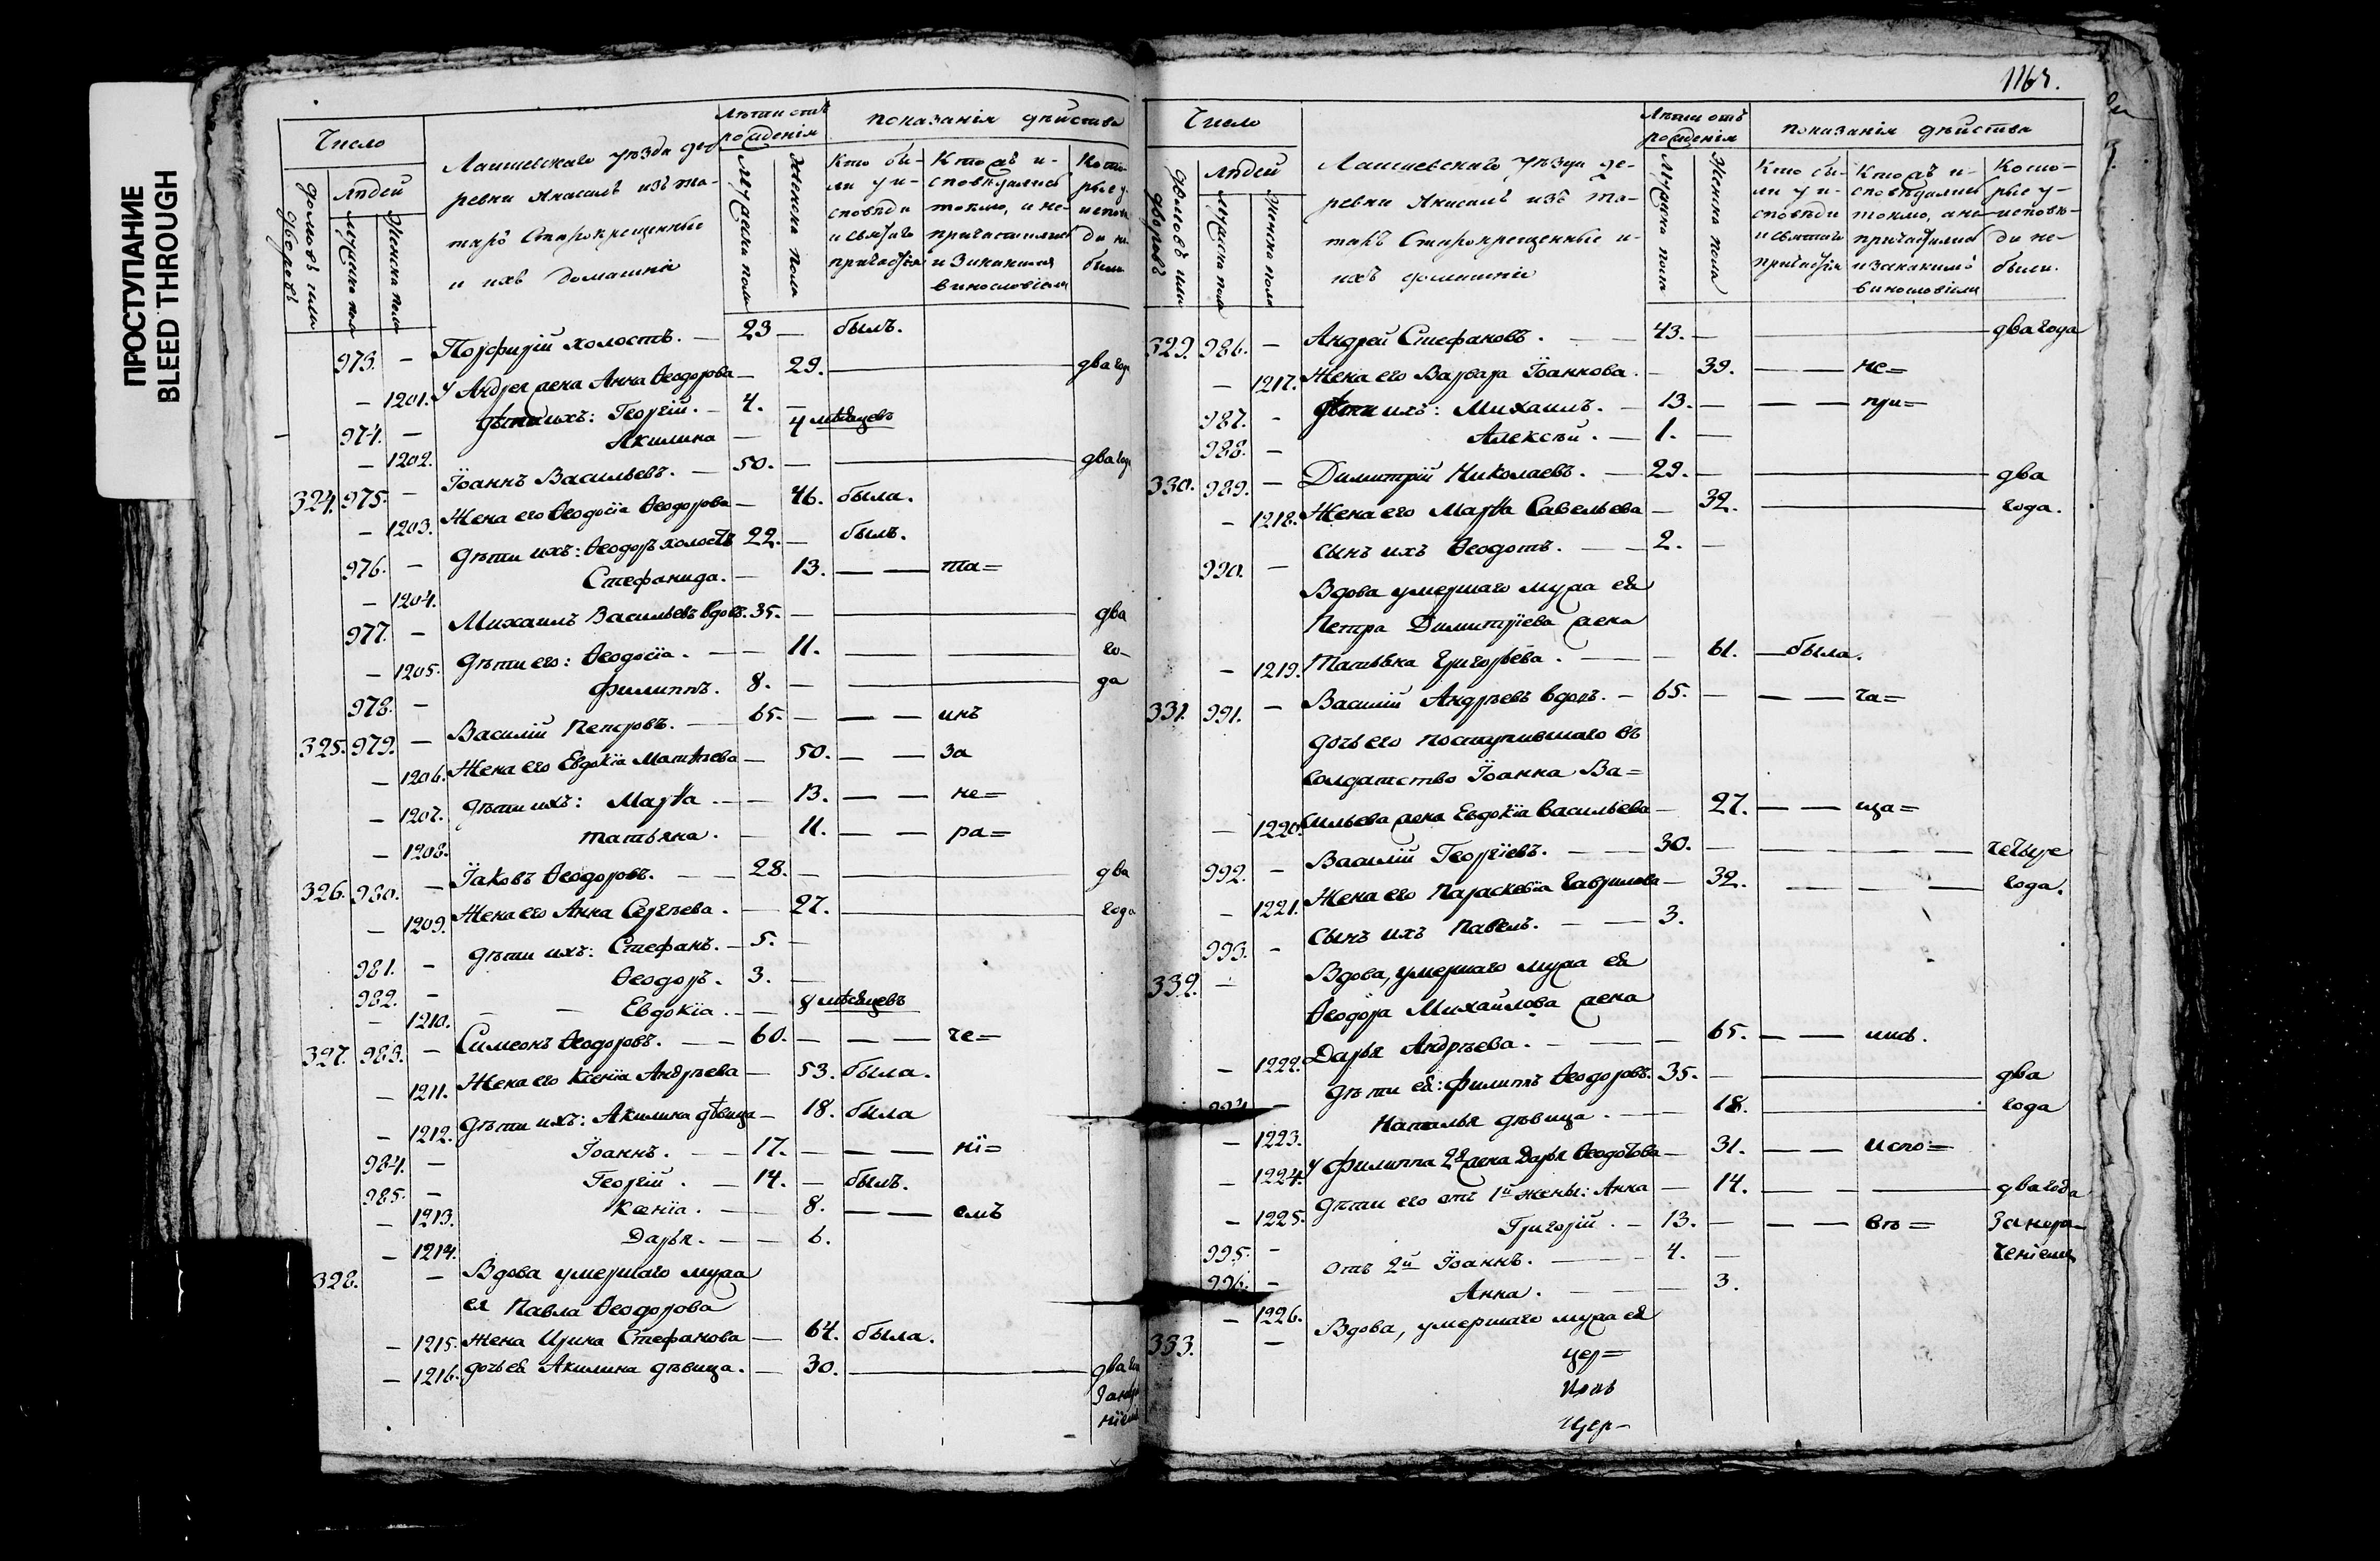 ПРОСТУПАНИЕ
BLEED THROUGH
Число
Лаишевскаго уѣзда де-
ревни Янасалъ изъ та-
таръ Старокрещенные
и ихъ домашніе
Лѣта отъ рожденія
показанія дѣйства
домовъ или дворовъ
людей
мужеска пола
женска пола
Мужеска пола
Женска пола
Кто бы-
ли у и-
сповѣди
и святаго
причастія
Кто жъ и-
сповѣдались
токмо, и не-
причастились
и за какимъ
винословіемъ
Кото-
рые у
испов
ди не
были
973. — Порфирій холостъ. — 23 — былъ.
— 1201. У Андрея жена Анна Ѳеодорова — 29. — два год
974. — дѣти ихъ: Георгій. — 4. —
— 1202. Акилина — 4 мѣсяцевъ
324. 975. — Іоаннъ Васильевъ. — 50. — два год
— 1203. Жена его Ѳеодосія Ѳеодорова — 46. была.
976. — дѣти ихъ: Ѳеодоръ холостъ 22. — былъ.
— 1204. Стефанида. — 13. — — та=
977. — Михаилъ Васильевъ вдовъ. 35. — два
— 1205. дѣти его: Ѳеодосія. — 11. — го-
978. — Филиппъ. 8. — да
325. 979. — Василій Петровъ. — 65. — — — инъ
— 1206. Жена его Евдокія Матѳѣева — 50. — — за
— 1207. дѣти ихъ: Марѳа — 13. — — не=
— 1208. татьяна. — 11. — — ра=
326. 980. — Іаковъ Ѳеодоровъ. — 28. — два
— 1209. Жена его Анна Сергѣева. — 27. — года
981. — дѣти ихъ: Стефанъ. — 5. —
982. — Ѳеодоръ. 3. —
— 1210. Евдокія. — 8 мѣсяцевъ
327. 983. — Симеонъ Ѳеодоровъ. — 60. — — — че=
— 1211. Жена его Ксенія Андрѣева — 53. была.
— 1212. дѣти ихъ: Акилина дѣвица — 18. была
984. — Іоаннъ. — 17. — — — ні=
985. — Георгій. — 14. — былъ.
— 1213. Ксенія. — 8. — — емъ
— 1214. Дарья. — — 6.
328. — Вдова умершаго мужа
ея Павла Ѳеодорова
— 1215. жена Ирина Стефанова — 64. была.
— 1216. дочь ея Акилина дѣвица. — 30. — два го
1164.
Число
Лаишевскаго уѣзда де-
ревни Янасалъ изъ та-
таръ Старокрещенные и
ихъ домашніе
Лѣта отъ рожденія
показанія дѣйства
домовъ или дворовъ
людей
мужеска пола
женска пола
Мужеска пола
Женска пола
Кто бы-
ли у и-
сповѣди
и святаго
причастія
Кто жъ и-
сповѣдались
токмо, а не
причастились
и за какимъ
винословіемъ
Кото-
рые у-
исповѣ-
ди не-
были.
329. 986. — Андрей Стефановъ. — 43. — два года
— 1217. Жена его Варвара Іоаннова. — 39. — — не=
987. — дѣти ихъ: Михаилъ. — 13. — — — при=
988. — Алексѣй. — 1. —
330. 989. — Димитрій Николаевъ. — 29. — два
— 1218. Жена его Марѳа Савельева — 32. — года.
990. — сынъ ихъ Ѳеодотъ. — 2. —
Вдова умершаго мужа ея
Петра Димитріева жена
— 1219. Татьяна Григорьева. — 61. — была.
331. 991. — Василій Андрѣевъ вдовъ. — 65. — — — ча=
дочь его поступившаго въ
солдатство Іоанна Ва=
— 1220. сильева жена Евдокія Васильева — 27. — — ща=
992. — Василій Георгіевъ. — 30. — четыре
— 1221. Жена его Параскевія Гаврилова — 32. — года.
993. — сынъ ихъ Павелъ. — 3.
332. — Вдова, умершаго мужа ея
Ѳеодора Михайлова жена
— 1222. Дарья Андрѣева. — 65. — —
994. — дѣти ея: Филиппъ Ѳеодоровъ. 35. — два
— 1223. Наталья дѣвица. — 18. — года
— 1224. У Филиппа 2я жена Дарья Ѳеодотова — 31. — — испо=
— 1225. дѣти его отъ 1й жены: Анна — 14. — два года
995. — Григорій. — 13. — — — вѣ= за нера-
996. — отъ 2й Іоаннъ. — 4. — ченіемъ
— 1226. Анна. — 3.
333. — Вдова, умершаго мужа ея
цер=
Цер-